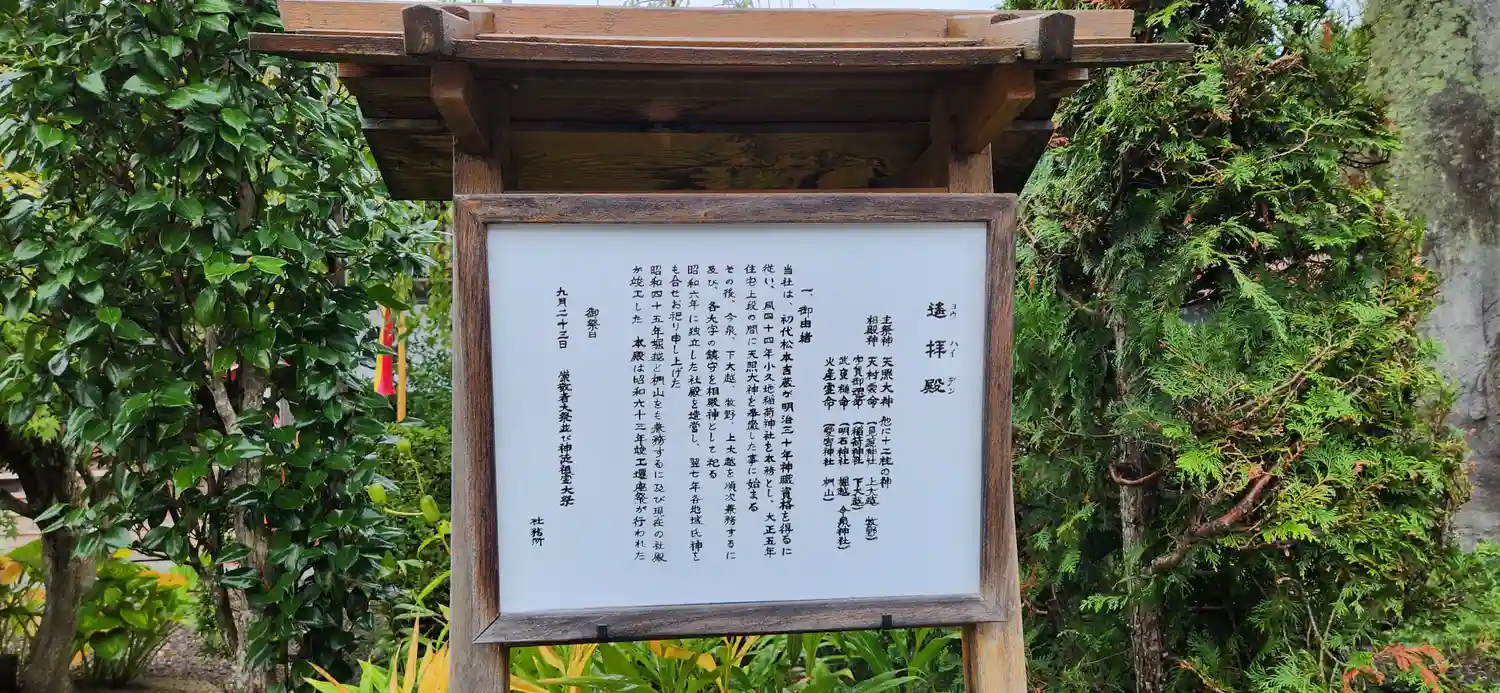 遙拝殿
ヨウ ハイ デン
主祭神 天照大神 他に十二柱の神
相殿神 天村雲命 (見渡神社 上大越 牧野)
宇賀御魂命 (稲荷神社 下大越)
武甕槌命 (明石神社 堀越 今泉神社)
火産霊命 (愛宕神社 栃山)
一、御由緒
当社は、初代松本吉蔵が明治三十年神職資格を得るに
従い、同四十四年小久地稲荷神社を本務とし、大正五年
住宅上段の間に天照大神を奉齋した事に始まる
その後、今泉、下大越、牧野、上大越を順次兼務するに
及び、各大字の鎮守を相殿神として祀る
昭和六年に独立した社殿を造営し、翌七年各地域氏神を
も合せお祀り申し上げた
昭和四十五年堀越と栃山をも兼務するに及び現在の社殿
が竣工した 本殿は昭和六十三年竣工遷座祭が行われた
御祭日
九月二十三日 崇敬者大祭並び神徒祖霊大祭
社務所